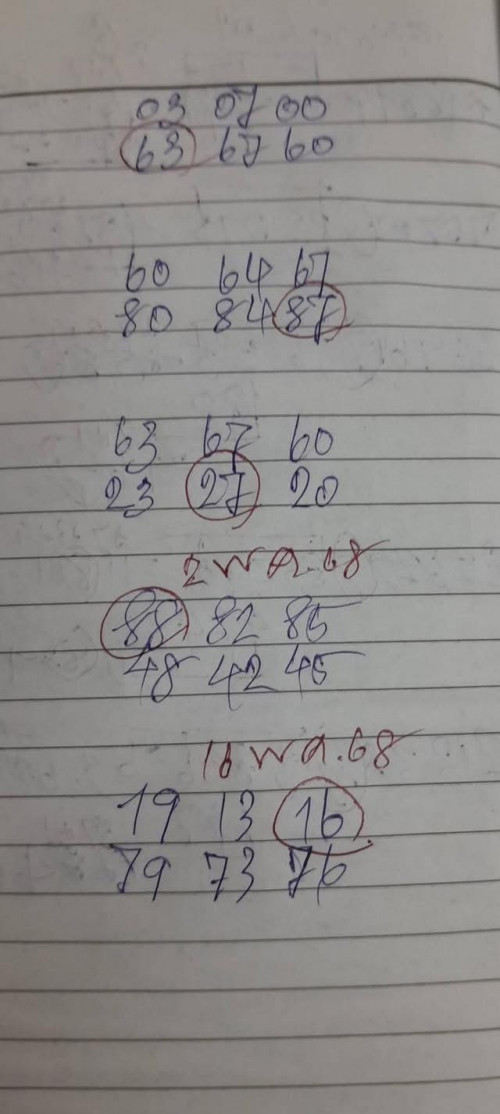 03 07 00
63 67 60
60 64 67
80 84 87
63 67 60
23 27 20
2 พ.ค.68
88 82 85
48 42 45
16 พ.ค.68
19 13 16
79 73 76